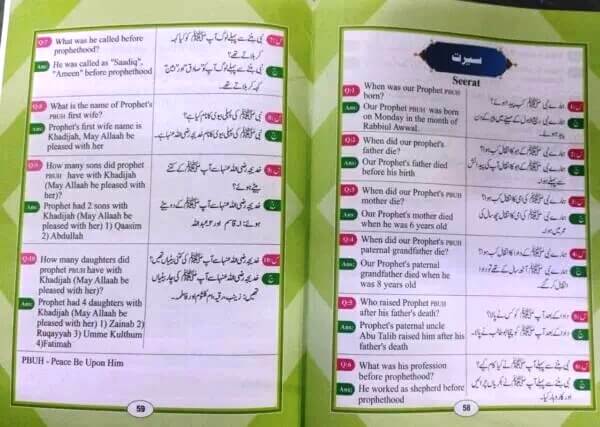 سیرت
Seerat
Q:1
When was our Prophet PBUH
born?
Ans:
Our Prophet PBUH was born
on Monday in the month of
Rabbiul Awwal.
ہمارے نبی ﷺ کب پیدا ہوئے؟
Q:2
When did our prophet's
father die?
Ans:
Our Prophet's father died
before his birth
ہمارے نبی ﷺ کے ابو کا انتقال کب ہوا؟
سے پہلے ہوا۔
Q:3
When did our Prophet PBUH
mother die?
Ans:
Our Prophet's mother died
when he was 6 years old
ہمارے نبی ﷺ کی امی کا انتقال کب ہوا؟
عمر میں ہوا۔
Q:4
When did our Prophet PBUH
paternal grandfather die?
Ans:
Our Prophet's paternal
grandfather died when he
was 8 years old
ہمارے نبی ﷺ کے دادا کا انتقال کب ہوا؟
انتقال کر گئے۔
Q:5
Who raised Prophet PBUH
after his father's death?
Ans:
Prophet's paternal uncle
Abu Talib raised him after his
father's death
دادا کے بعد آپ ﷺ کو کس نے پالا؟
دادا کے بعد آپ ﷺ کو چچا ابو طالب نے پالا۔
Q:6
What was his profession
before prophethood?
Ans:
He worked as shepherd before
prophethood
نبی بننے سے پہلے آپ ﷺ نے کیا کام کیے؟
نبی بننے سے پہلے آپ ﷺ نے بکریاں چرائیں
اور کاروبار کیا۔
58
Q:7
What was he called before
prophethood?
Ans:
He was called as "Saadiq",
"Ameen" before prophethood
نبی بننے سے پہلے لوگ آپ ﷺ کو کیا کہہ
کر بلاتے تھے؟
نبی بننے سے پہلے آپ ﷺ کو "صادق" اور "امین"
کہہ کر بلاتے تھے۔
Q:8
What is the name of Prophet's
PBUH first wife?
Ans:
Prophet's first wife name is
Khadijah, May Allaah be
pleased with her
نبی ﷺ کی پہلی بیوی کا نام کیا ہے؟
نبی ﷺ کی پہلی بیوی کا نام خدیجہ رضی اللہ عنہا ہے۔
Q:9
How many sons did prophet
PBUH have with Khadijah
(May Allaah be pleased with
her)?
Ans:
Prophet had 2 sons with
Khadijah (May Allaah be
pleased with her) 1) Qaasim
2) Abdullah
خدیجہ رضی اللہ عنہا سے آپ ﷺ کے کتنے
بیٹے ہوئے؟
خدیجہ رضی اللہ عنہا سے آپ ﷺ کے دو بیٹے
ہوئے: ۱۔ قاسم اور ۲۔ عبداللہ
Q:10
How many daughters did
prophet PBUH have with
Khadijah (May Allaah be
pleased with her)?
Ans:
Prophet had 4 daughters with
Khadijah (May Allaah be
pleased with her) 1) Zainab 2)
Ruqayyah 3) Umme Kulthum
4)Fatimah
خدیجہ رضی اللہ عنہا سے آپ ﷺ کی کتنی بیٹیاں تھیں؟
خدیجہ رضی اللہ عنہا سے آپ ﷺ کی چار بیٹیاں
تھیں: زینب، رقیہ، ام کلثوم اور فاطمہ۔
PBUH - Peace Be Upon Him
59